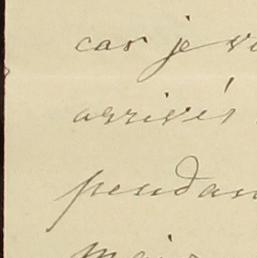 car je v
arrivés
pendan
mais